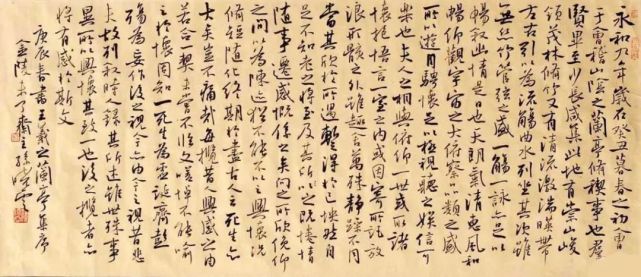 永和九年歲在癸丑暮春之初會
于會稽山陰之蘭亭脩禊事也群
賢畢至少長咸集此地有崇山峻
領茂林脩竹又有清流激湍暎帶
左右引以為流觴曲水列坐其次雖
無絲竹管弦之盛一觴一詠亦足以
暢叙幽情是日也天朗氣清惠風和
暢仰觀宇宙之大俯察品類之盛
所以遊目騁懷足以極視聽之娛信可
樂也夫人之相與俯仰一世或取諸
懷抱悟言一室之內或因寄所託放
浪形骸之外雖趣舍萬殊靜躁不同
當其欣於所遇暫得於己怏然自
足不知老之將至及其所之既惓情
隨事遷感慨係之矣向之所欣俛仰
之間以為陳迹猶不能不以之興懷況
脩短隨化終期於盡古人云死生亦
大矣豈不痛哉每攬昔人興感之由
若合一契未嘗不臨文嗟悼不能喻
之於懷固知一死生為虛誕齊彭
殤為妄作後之視今亦由今之視昔悲
夫故列叙時人錄其所述雖世殊事
異所以興懷其致一也後之攬者亦
將有感於斯文
庚辰春書王羲之蘭亭集序
金陵未了齋主孫曉雲